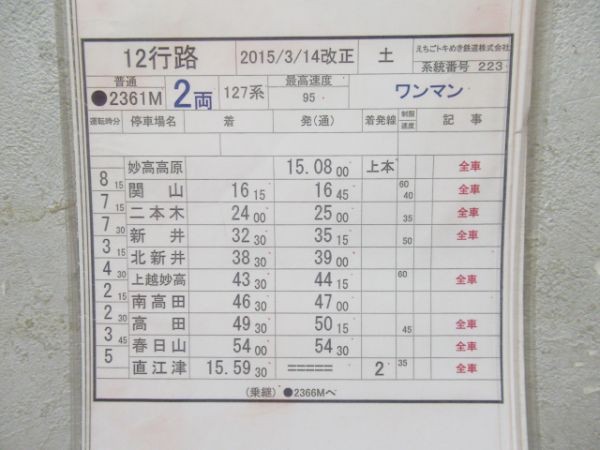 12行路 2015/3/14改正 土 えちごトキめき鉄道株式会社
系統番号 223
普通 最高速度
●2361M 2両 127系 95 ワンマン
運転時分 停車場名 着 発(通) 着発線 制限速度 記事
妙高高原 15.08 00 上本 全車
8 15
関山 16 15 16 45 60 40 全車
7 15
二本木 24 00 25 00 35 全車
7 30
新井 32 30 35 15 50 全車
3 15
北新井 38 30 39 00
4 30
上越妙高 43 30 44 15 60 全車
2 15
南高田 46 30 47 00
2 30
高田 49 30 50 15 45 全車
3 45
春日山 54 00 54 30 全車
5
直江津 15.59 30 ===== 2 35 全車
(乗継) ●2366Mへ